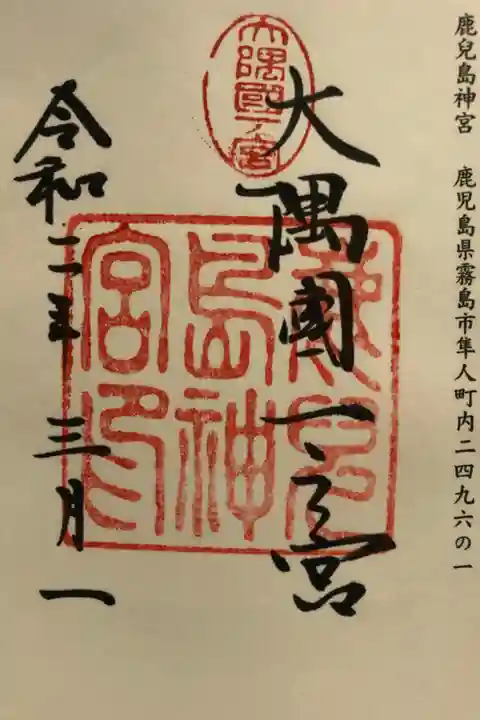 鹿兒島神宮 鹿児島県霧島市隼人町内二四九六の一
大隅國一之宮
大隅國一ノ宮
鹿兒島神宮印
令和二年 三月 一